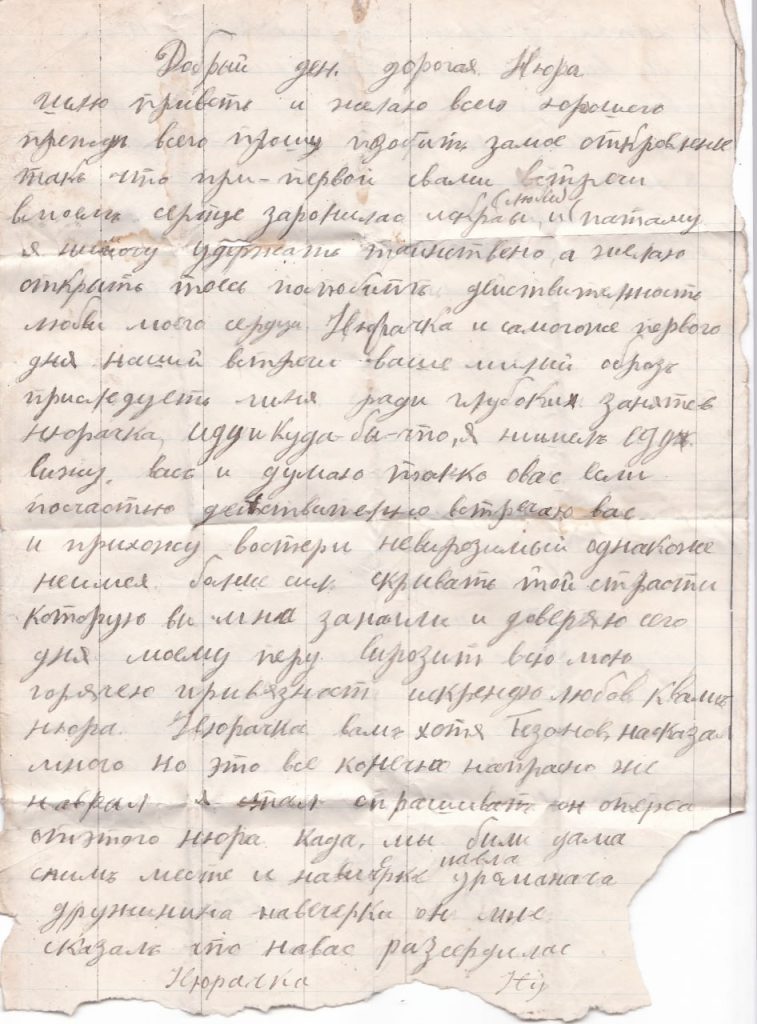 Добрый ден. дорогая Нюра
шлю приветь и желаю всего хорошего
всего прошу замое
такь что при-первой свами встречи
(любви)
сертце заронилас искры и патаму
я немогу удержать таинствено, а желаю
открыть действителность
любви моего сердца. Нюрачка и самогоже первого
дня нашей встречи ваше милий образь
приследуеть миня ради глубоких занятев
нюрачка, иду и куда-бы-что, я
вижу, вась и думаю толко овас если
посчастью действително встречаю вас
и прихожу востери невирозимый однакоже
неимея болше сил скривать той страсти
которую ви мна и доверяю сего
дня моему перу вирозит всю мою
горячею привязност искренюю любов квамь
нюра. Нюрачка вамь хотя насказал
много но это все конечна напрасно же
наврал я стал спрашивать он оперса
отэтого нюра када, мы били дама
павла
снимь месте и навичерке уроманача
дружинина навечерки он мне
сказаль что навас разсердилас
Нюрачка Ню